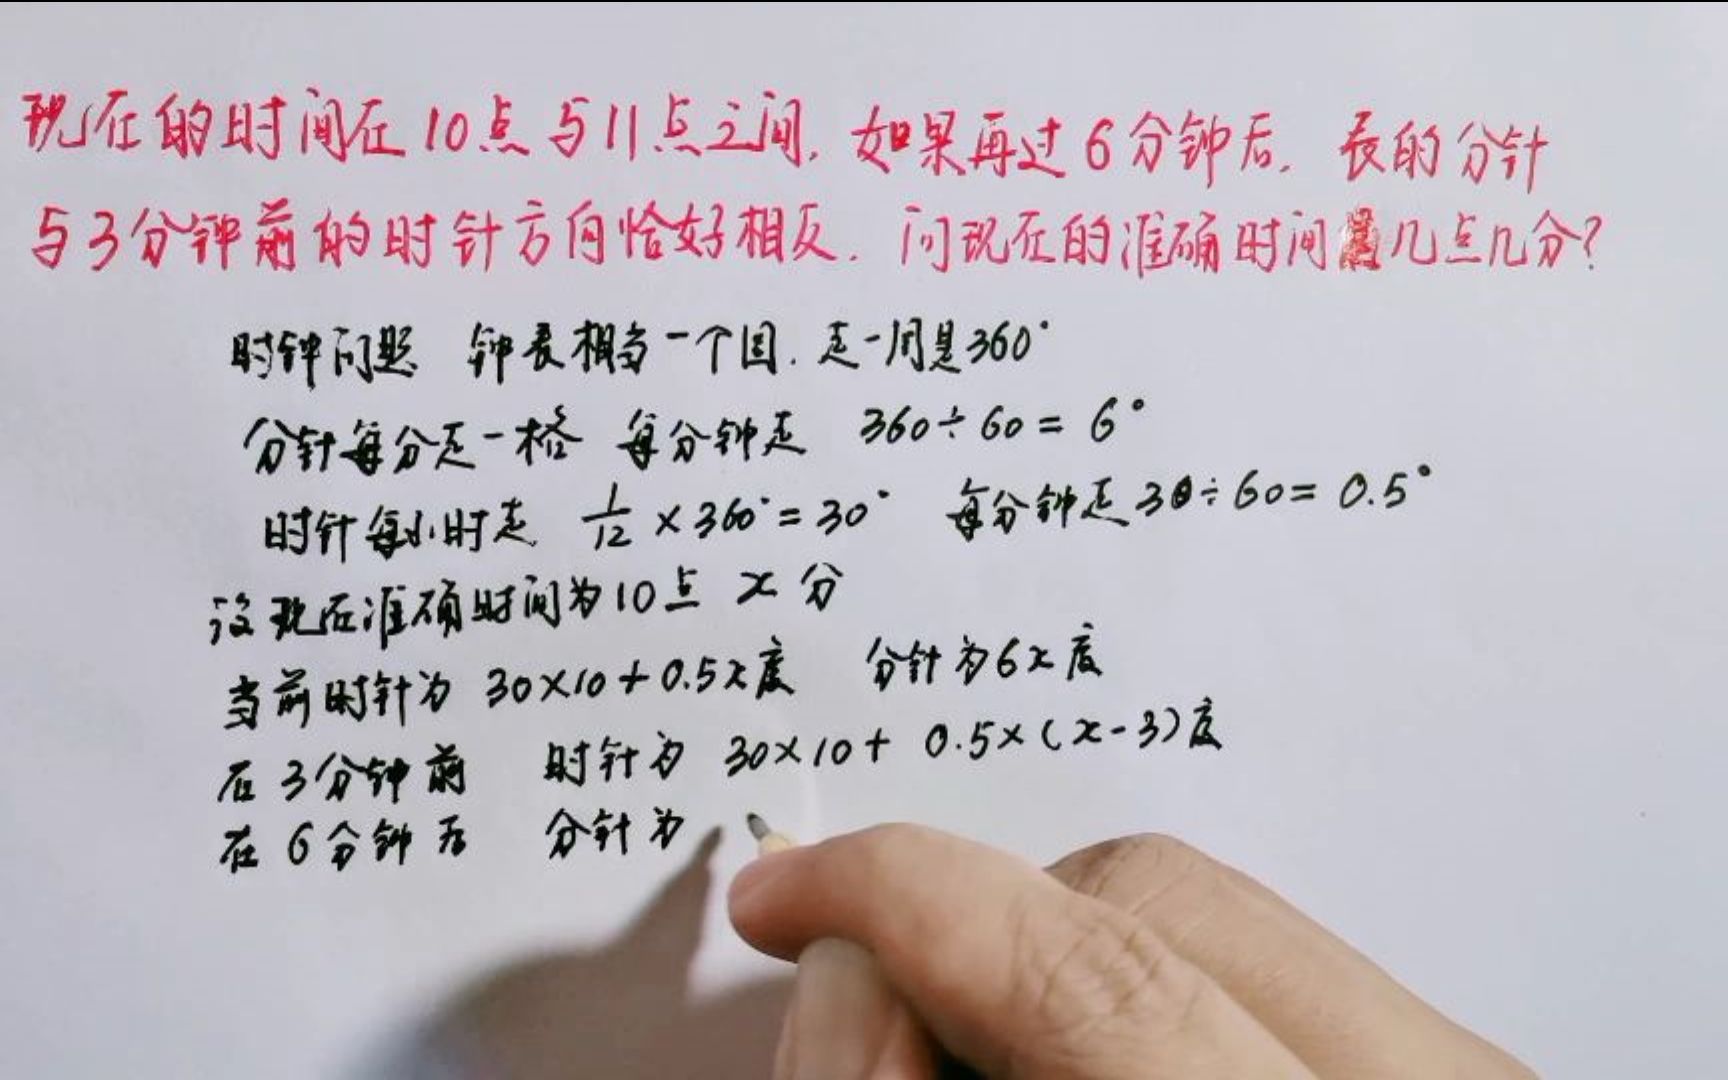 现在的时间在10点与11点之间，如果再过6分钟后，表的分针
与3分钟前的时针方向恰好相反．问现在的准确时间是几点几分？
时钟问题 钟表相当一个圆．走一周是360°
分针每分走一格 每分钟走 360÷60=6°
时针每小时走 1/12×360°=30° 每分钟走30÷60=0.5°
设现在准确时间为10点 x分
当前时针为 30×10+0.5x度 分针为6x度
在3分钟前 时针为 30×10+0.5×(x-3)度
在6分钟后 分针为